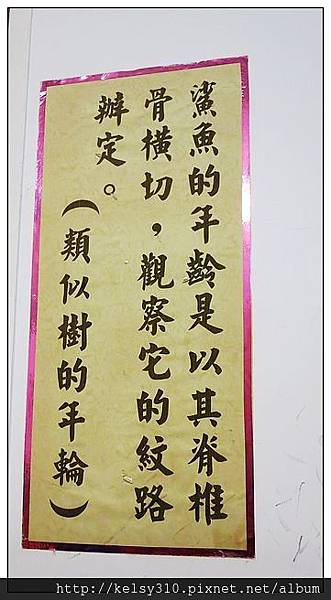 鯊魚的年齡是以其脊椎
骨橫切，觀察它的紋路
辦定。（類似樹的年輪）
http://kelsy310.pixnet.net/album